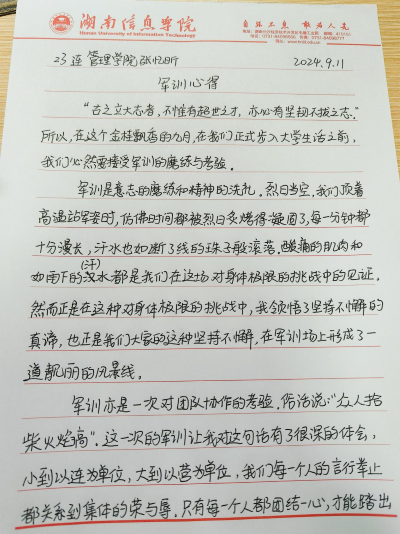 湖南信息学院
Hunan University of Information Technology
自强不息 敢为人先
23连 管理学院 张忆昕 2024.9.11
军训心得
“古之立大志者，不惟有超世之才，亦必有坚韧不拔之志。”
所以，在这个金桂飘香的九月，在我们正式步入大学生活之前，
我们必然要接受军训的磨练与考验。
军训是意志的磨练和精神的洗礼。烈日当空，我们顶着
高温站军姿时，仿佛时间都被烈日炙烤得凝固了，每一分钟都
十分漫长，汗水也如断了线的珠子般滚落。酸痛的肌肉和
(汗)
如雨下的汉水都是我们在这场对身体极限的挑战中的见证。
然而正是在这种对身体极限的挑战中，我领悟了坚持不懈的
真谛，也正是我们大家的这种坚持不懈，在军训场上形成了一
道靓丽的风景线。
军训亦是一次对团队协作的考验。俗话说：“众人拾
柴火焰高”。这一次的军训让我对这句话有了很深的体会，
小到以连为单位，大到以营为单位，我们每一个人的言行举止
都关系到集体的荣与辱。只有每一个人都团结一心，才能踏出